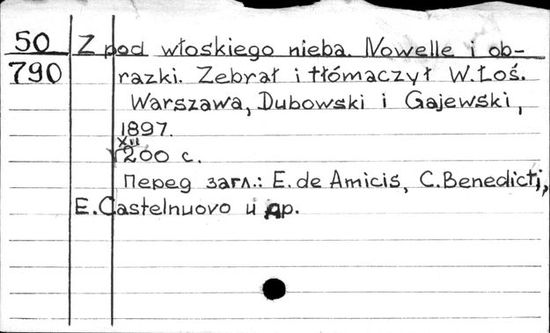 50
790
Z pod włoskiego nieba. Nowelle i ob-
razki. Zebrał i tłómaczył W. Łoś.
Warszawa, Dubowski i Gajewski,
1897.
XII
200 с.
Перед загл.: E. de Amicis, C. Benedicti,
E. Castelnuovo и др.